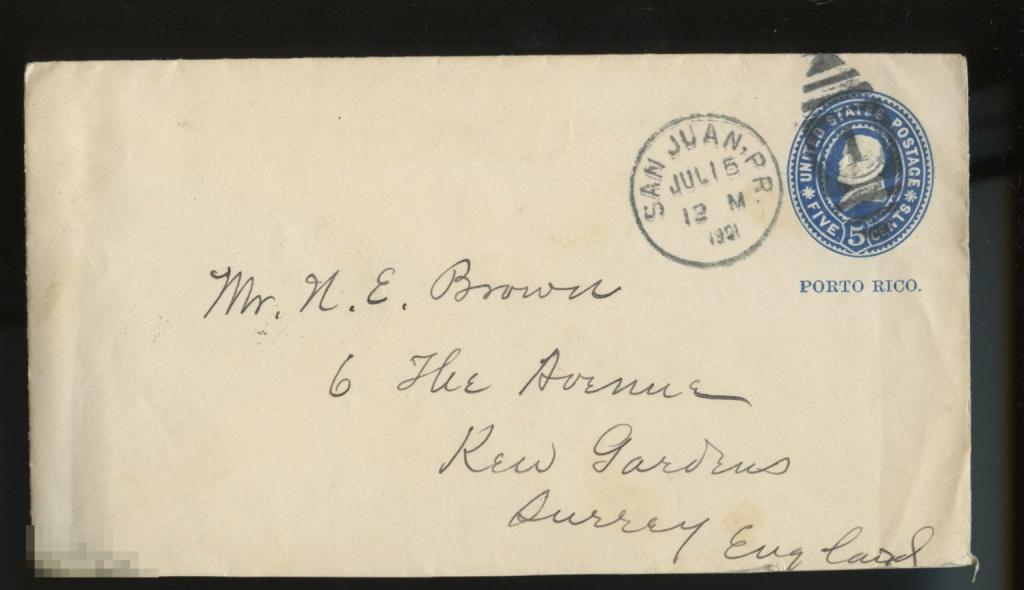 SAN JUAN, P.R.
JUL 15
12 M
1901
UNITED STATES POSTAGE
1
FIVE 5 CENTS
PORTO RICO.
Mr. N. E. Brown
6 The Avenue
Kew Gardens
Surrey England